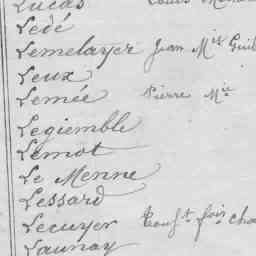 Lucas Louis
Ledé
Lemelayer Jean Mie Guil
Leux
Lemée Pierre Mie
Legiemble
Lemot
Le Menne
Lessard
Lecuyer Touſt fois cha
Launay